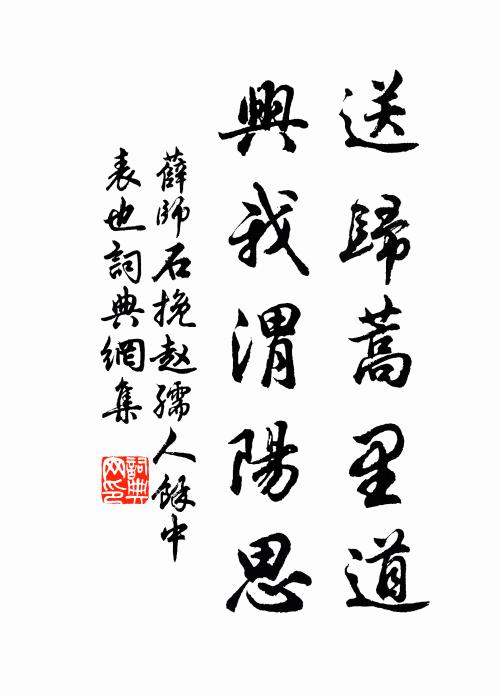 送歸蒿里道
興我渭陽思
薛師石挽赵孺人餘中
表也詞典網集
詞典
网印